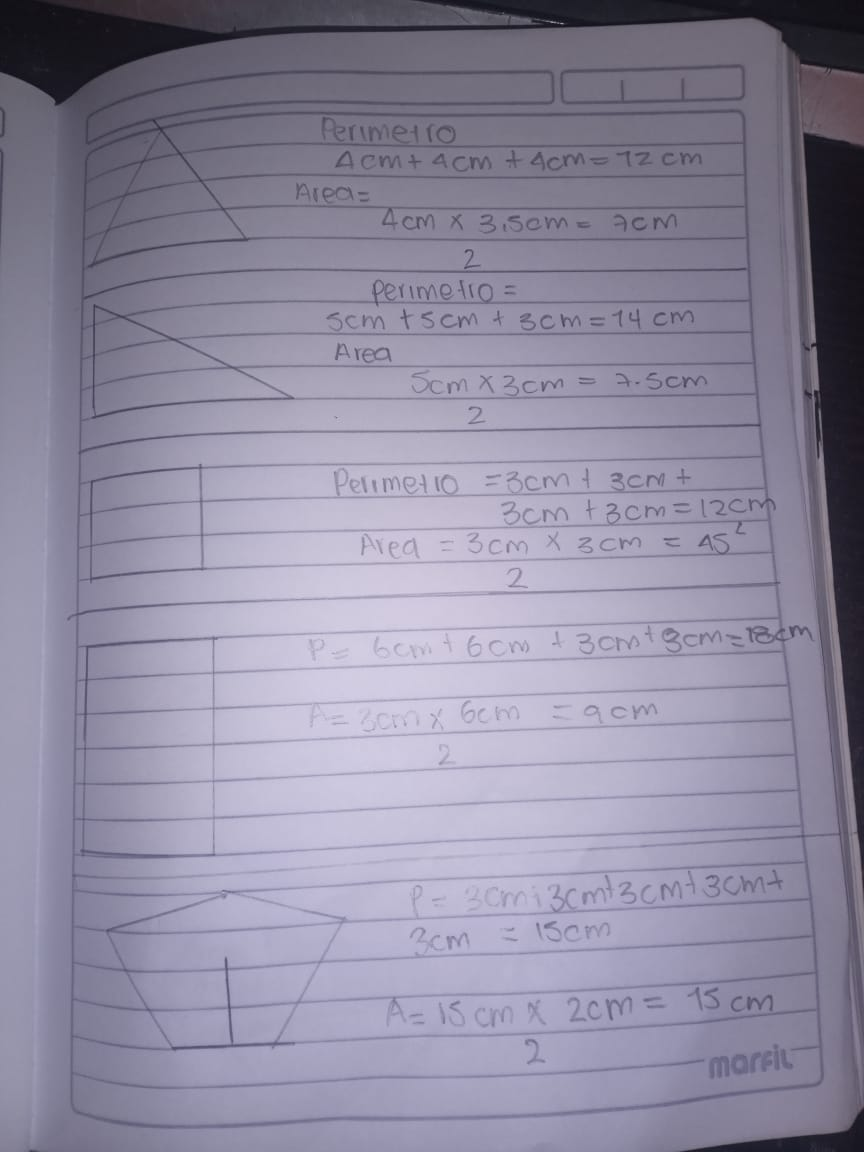 Perimetro
4cm + 4cm + 4cm = 12 cm
Area =
4cm x 3,5cm = 7cm
2
Perimetro =
5cm + 5cm + 3cm = 14 cm
Area
5cm x 3cm = 7.5cm
2
Perimetro = 3cm + 3cm +
3cm + 3cm = 12cm
Area = 3cm x 3cm = 45²
2
P = 6cm + 6cm + 3cm + 3cm = 18cm
A = 3cm x 6cm = 9cm
2
P = 3cm + 3cm + 3cm + 3cm +
3cm = 15cm
A = 15cm x 2cm = 15cm
2
marfil